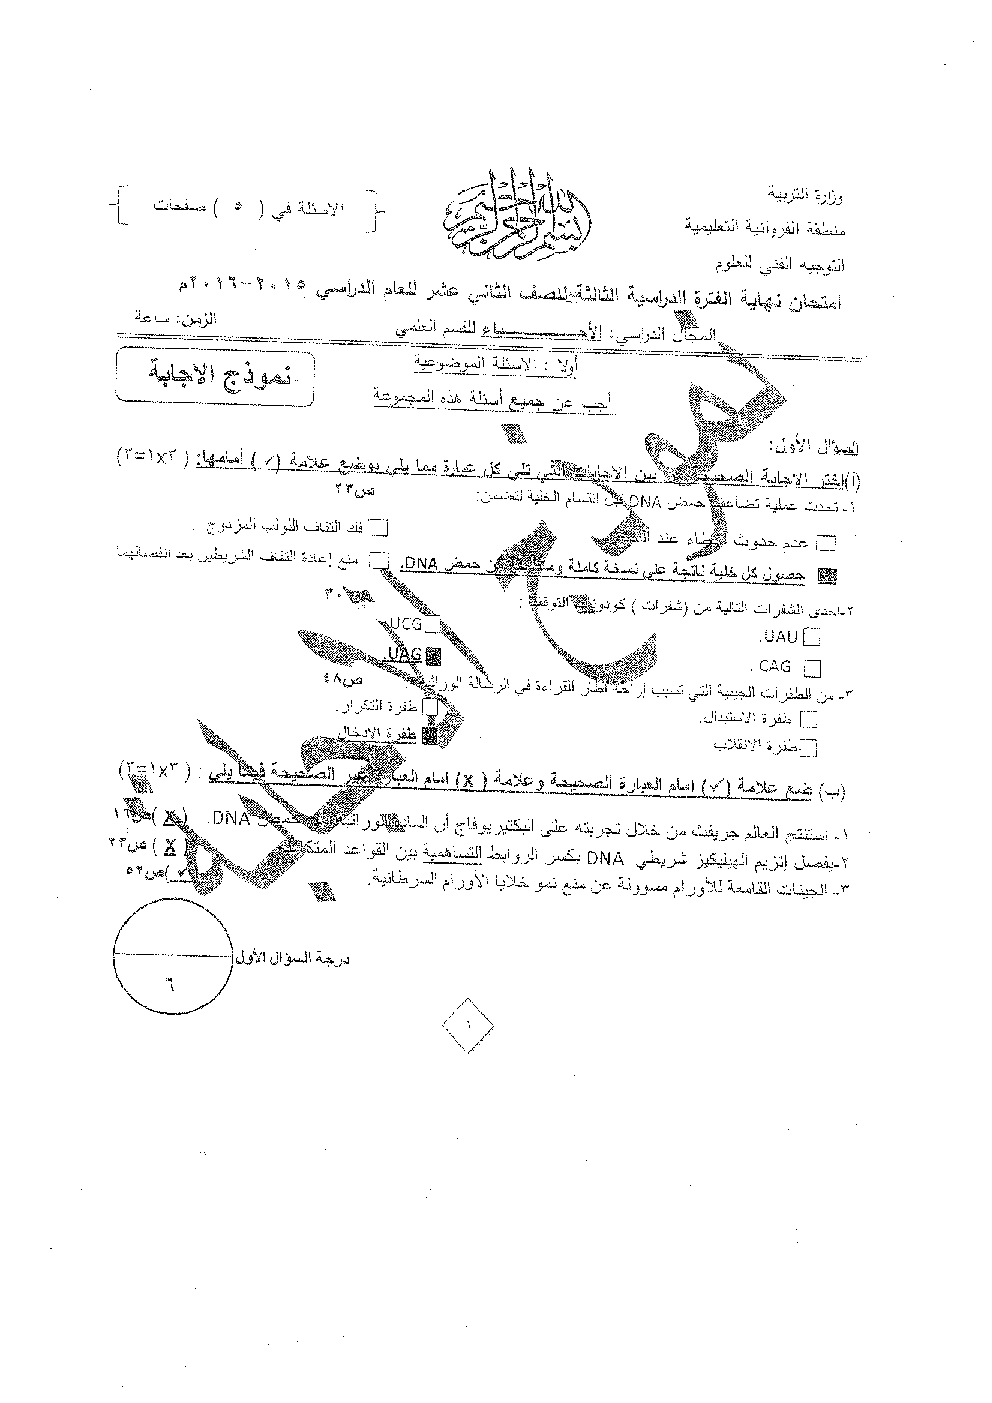 وزارة التربية
منطقة الفروانية التعليمية
التوجيه الفني للعلوم
الاسئلة في ( ٥ ) صفحات
امتحان نهاية الفترة الدراسية الثالثة للصف الثاني عشر للعام الدراسي ٢٠١٥-٢٠١٦م
المجال الدراسي: الأحياء للقسم العلمي الزمن: ساعة
أولا : الاسئلة الموضوعية
نموذج الاجابة
أجب عن جميع أسئلة هذه المجموعة
السؤال الأول:
(أ) اختر الاجابة الصحيحة من بين الاجابات التي تلي كل عبارة مما يلي بوضع علامة (✓) أمامها: (٣×١=٣)
١- تحدث عملية تضاعف حمض DNA قبل انقسام الخلية لتضمن: ص٢٣
عدم حدوث أخطاء عند
فك التفاف اللولب المزدوج .
حصول كل خلية ناتجة على نسخة كاملة من حمض DNA.
منع إعادة التفاف الشريطين بعد انفصالهما
٢-احدى الشفرات التالية من (شفرات ) كودونات التوقف : ص٣٠
UAU.
UCG.
CAG .
UAG.
٣- من الطفرات الجينية التي تسبب إزاحة اطار القراءة في الرسالة الوراثية ص٤٨
طفرة الاستبدال.
طفرة التكرار.
طفرة الانقلاب
طفرة الادخال
(ب) ضع علامة (✓) امام العبارة الصحيحة وعلامة (X) امام العبارة غير الصحيحة فيما يلي : (٣×١=٣)
١- استنتج العالم جريفث من خلال تجربته على البكتيريوفاج أن المادة الوراثية حمض DNA. (X) ص١٦
٢-يفصل إنزيم الهيليكيز شريطي DNA بكسر الروابط التساهمية بين القواعد المتكاملة (X) ص٢٣
٣- الجينات القامعة للأورام مسؤولة عن منع نمو خلايا الأورام السرطانية. (✓) ص٥٢
درجة السؤال الأول
٦
١